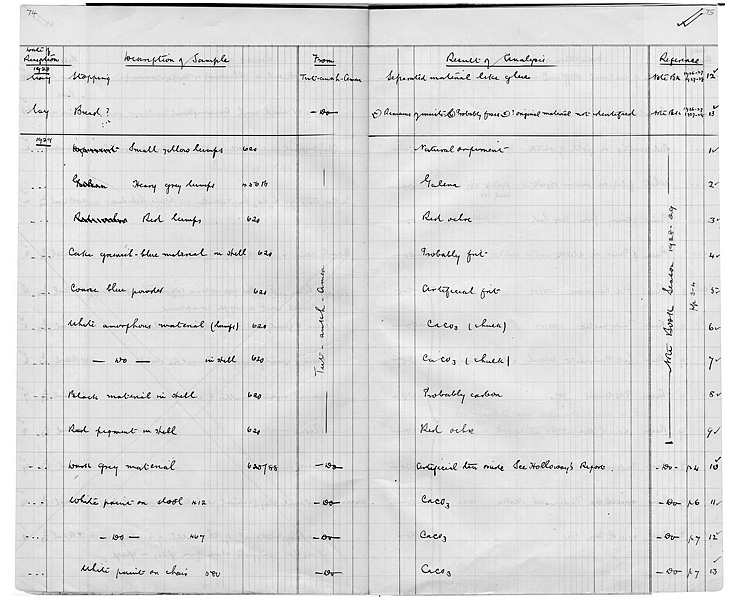 74
75
Date of Reception Description of Sample From Result of Analysis Reference
1928
May Stopping Tut-ankh-Amen Separated material like glue Note Bk 1926-27 1927-28 12
May Bread ? — Do — Probably original material not identified Note Bk 1926-27 1927-28 13
1929
.... Small yellow lumps 620 Natural orpiment 1
.... Galena Heavy grey lumps Galena 2
.... Red lumps 620 Red ochre 3
.... Cake greenish-blue material in shell 620 Probably frit 4
.... Coarse blue powder 620 Artificial frit 5
.... White amorphous material (lumps) 620 CaCO3 (chalk) 6
.... — Do — in shell 620 CaCO3 (chalk) 7
.... Black material in shell 620 Probably carbon 8
.... Red pigment in shell 620 Red ochre 9
Tut-ankh-Amen
Note Book Season 1928-29
pp 3-4
.... Dark grey material 620/98 — Do — Artificial tin oxide See Holloway's Report. — Do — p4 10
.... White paint on stool 412 — Do — CaCO3 — Do — p6 11
.... — Do — 467 — Do — CaCO3 — Do — p7 12
.... White paint on chair 580 — Do — CaCO3 — Do — p7 13